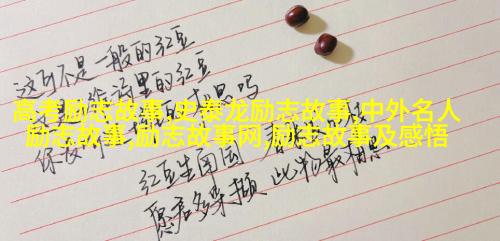 这可不是一般的红豆
海里的红豆
高考励志故事,史泰龙励志故事,中外名人
励志故事,励志故事网,励志故事及感悟
红豆生南国
愿君多采撷 此物最相思